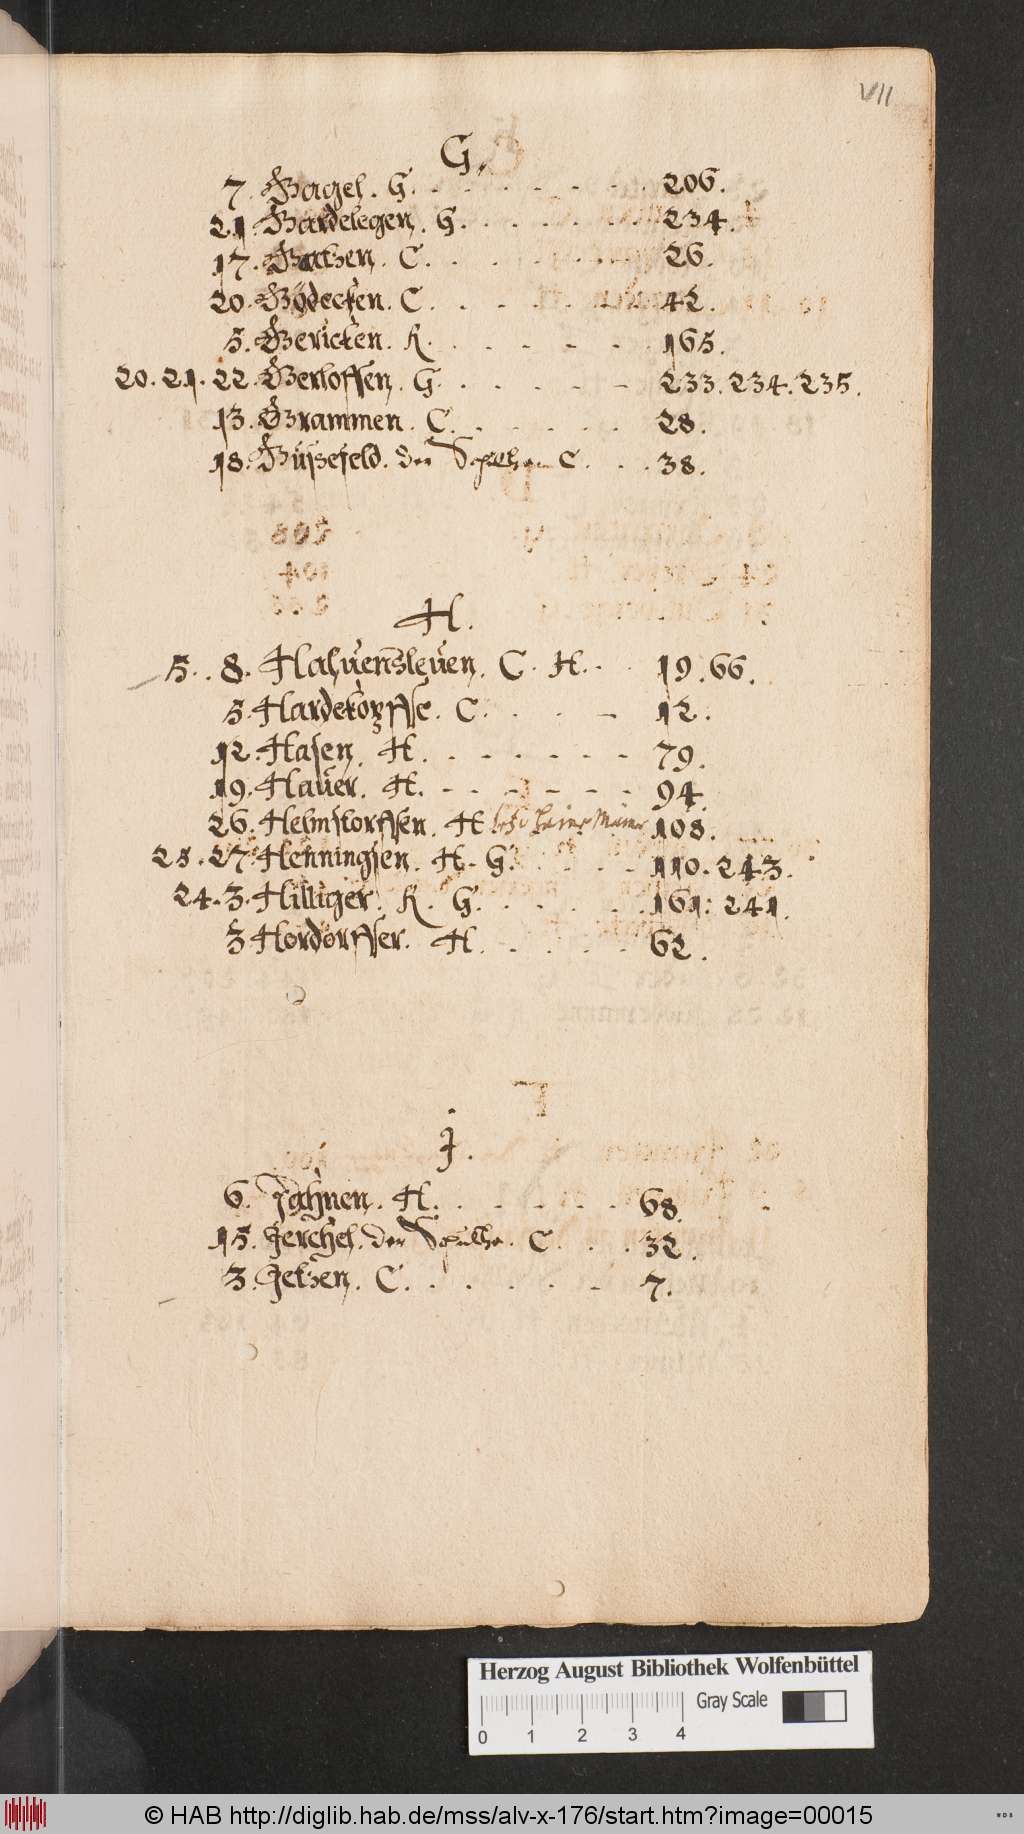 VII
G.
7. Gagel. G. - - - - - - - 206.
21. Gardelegen. G. - - - - - 234.
17. Gatzen. C. - - - - - - 26.
20. Gödecken. C. - - - - - - 42.
5. Gericken. K. - - - - - - 165.
20. 21. 22. Gerloffsen. G. - - - - - - 233. 234. 235.
13. Grammen. C. - - - - - - 28.
18. Güsefeld. der C. - - - 38.
H.
5. 8. Halvensleven. C. H. - - 19. 66.
5. Hardekopffse. C. - - - - 12.
12. Hasen. H. - - - - - - - 79.
19. Haver. H. - - - - - - - 94.
26. Helmstorffsen. H 108.
25. 27. Henningsen. H. G. - - - - 110. 243.
24. 3. Hilliger. K. G. - - - - - - 161. 241.
3 Hordorffser. H. - - - - - 62.
J.
6. Jahnen. H. - - - - - - 68.
15. Jerchel. der Schulthe. C. - - - 32.
3. Jetzen. C. - - - - - - 7.
Herzog August Bibliothek Wolfenbüttel
0 1 2 3 4
Gray Scale
© HAB http://diglib.hab.de/mss/alv-x-176/start.htm?image=00015
WDB